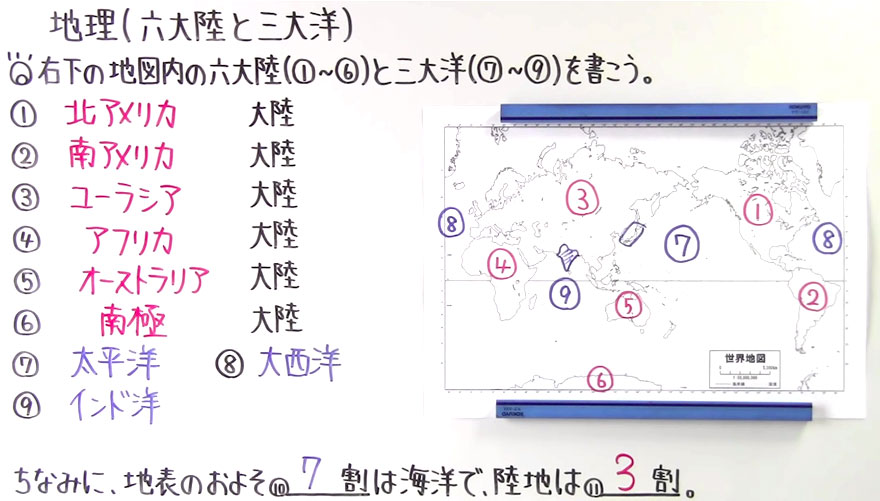 地理(六大陸と三大洋)
右下の地図内の六大陸(①~⑥)と三大洋(⑦~⑨)を書こう。
① 北アメリカ 大陸
② 南アメリカ 大陸
③ ユーラシア 大陸
④ アフリカ 大陸
⑤ オーストラリア 大陸
⑥ 南極 大陸
⑦ 太平洋 ⑧ 大西洋
⑨ インド洋
③
①
⑧
⑦
⑧
④
⑨
⑤
②
⑥
世界地図
ちなみに、地表のおよそ⑩ 7 割は海洋で、陸地は⑪ 3 割。